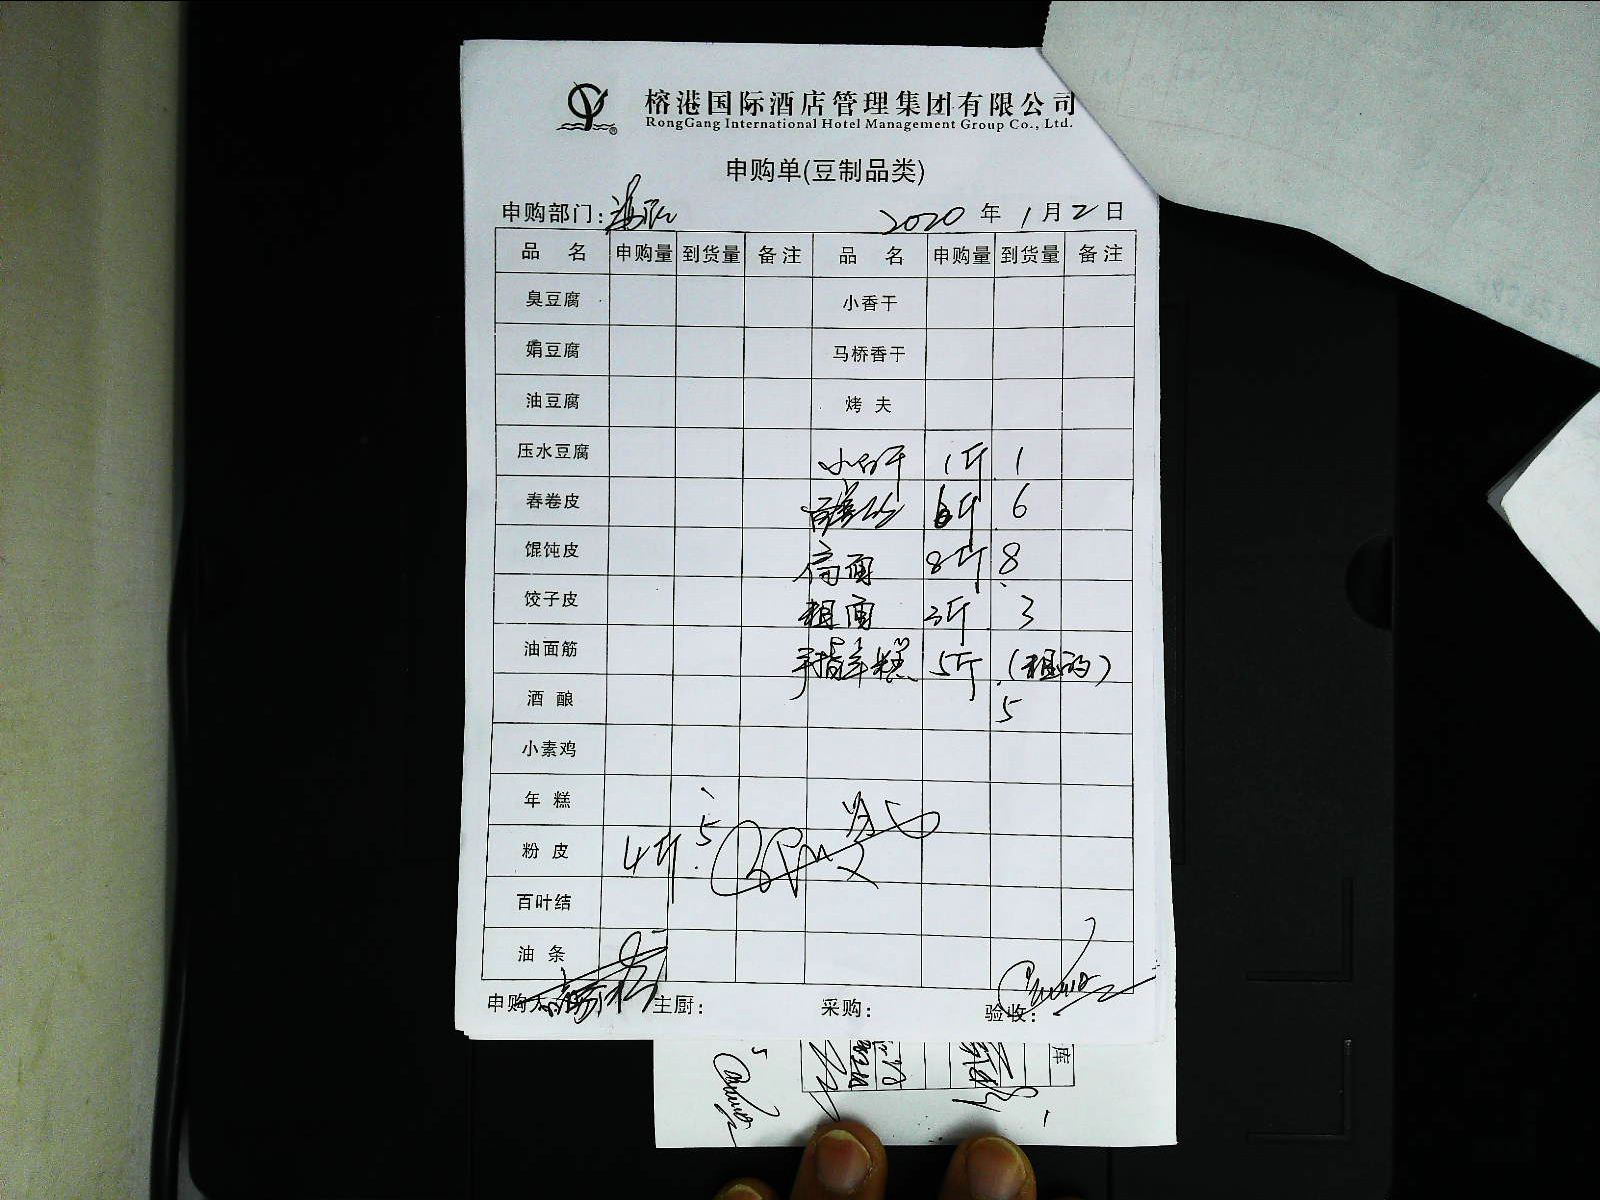 榕港国际酒店管理集团有限公司
RongGang International Hotel Management Group Co., Ltd.
申购单(豆制品类)
申购部门: 2020 年 1 月 2 日
品 名 申购量 到货量 备注 品 名 申购量 到货量 备注
臭豆腐 小香干
娟豆腐 马桥香干
油豆腐 烤 夫
压水豆腐 小白干 1斤 1
春卷皮 6斤 6
馄饨皮 面 8斤 8
饺子皮 粗面 3斤 3
油面筋 手指年糕 5斤 (粗的)
酒 酿 5
小素鸡
年 糕
粉 皮 4斤 5
百叶结
油 条
申购人: 主厨: 采购: 验收:
库
5